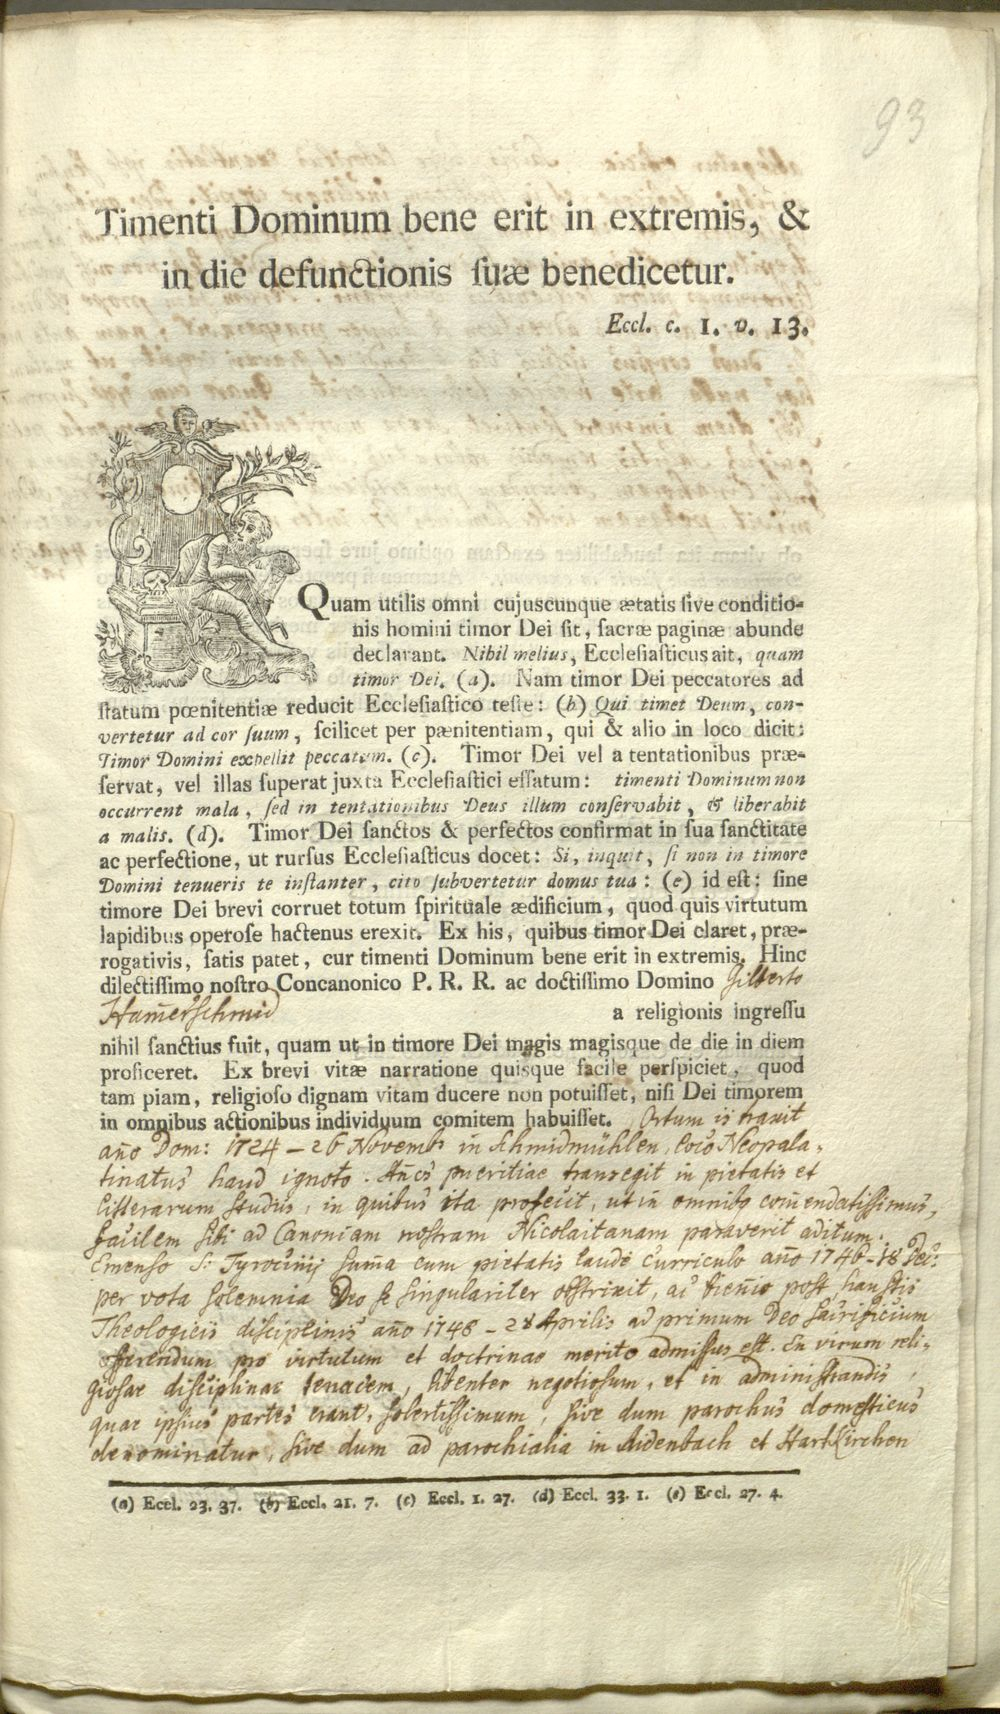 93
Timenti Dominum bene erit in extremis, &
in die defunctionis ſuæ benedicetur.
Eccl. c. 1. v. 13.
Quam utilis omni cujuscunque ætatis ſive conditio-
nis homini timor Dei ſit, ſacræ paginæ abunde
declarant. Nihil melius, Eccleſiaſticus ait, quam
timor Dei. (a). Nam timor Dei peccatores ad
ſtatum pœnitentiæ reducit Eccleſiaſtico teſte: (b) Qui timet Deum, con-
vertetur ad cor ſuum, ſcilicet per pænitentiam, qui & alio in loco dicit:
Timor Domini expellit peccatum. (c). Timor Dei vel a tentationibus præ-
ſervat, vel illas ſuperat juxta Eccleſiaſtici effatum: timenti Dominum non
occurrent mala, ſed in tentationibus Deus illum conſervabit, & liberabit
a malis. (d). Timor Dei ſanctos & perfectos confirmat in ſua ſanctitate
ac perfectione, ut rurſus Eccleſiaſticus docet: Si, inquit, ſi non in timore
Domini tenueris te inſtanter, cito ſubvertetur domus tua: (e) id eſt: ſine
timore Dei brevi corruet totum ſpirituale ædificium, quod quis virtutum
lapidibus operoſe hactenus erexit. Ex his, quibus timor Dei claret, præ-
rogativis, ſatis patet, cur timenti Dominum bene erit in extremis. Hinc
dilectiſſimo noſtro Concanonico P. R. R. ac doctiſſimo Domino Gilberto
Ham̄erschmid a religionis ingreſſu
nihil ſanctius fuit, quam ut in timore Dei magis magisque de die in diem
proficeret. Ex brevi vitæ narratione quisque facile perſpiciet, quod
tam piam, religioſo dignam vitam ducere non potuiſſet, niſi Dei timorem
in omnibus actionibus individuum comitem habuiſſet. Ortum is traxit
año Dom: 1724 – 26 Novemb: in Schmidmühlen, loco Neopala-
tinatus haud ignoto. Añ́os pueritiae transegit in pietatis et
litterarum studiis, in quibus ita profecit, ut in omnibq com̄endatissimus,
facilem sibi ad Canoniam nostram Nicolaitanam paraverit aditum.
Emenso S: Tyrocinij sum̄a cum pietatis laude curriculo año 1746–18 Dec:
per vota solemnia Deo se singulariter obstrixit, ac bieñio post haustis
Theologicis disciplinis año 1748 – 28 Aprilis ad primum Deo sacrificium
offerendum pro virtutum et doctrinae merito admissus est. En virum reli-
giosae disciplinae tenacem, libenter negotiosum, et in administrandis,
quae ipsius partes erant, solertissimum, sive dum parochus domesticus
denominatur, sive dum ad parochialia in Aidenbach et Hartkirchen
(a) Eccl. 23. 37. (b) Eccl. 21. 7. (c) Eccl. 1. 27. (d) Eccl. 33. 1. (e) Eccl. 27. 4.